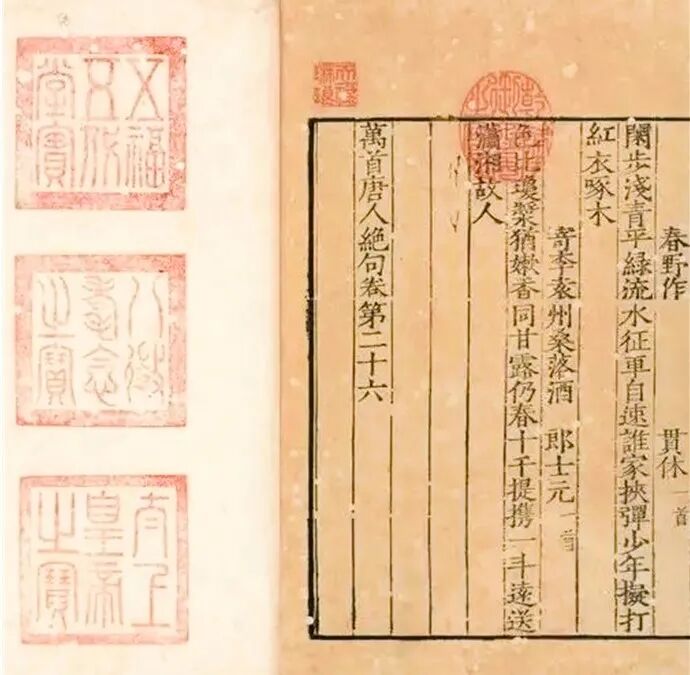 春野作 貫休 一首
閑步淺青平綠流水征車自速誰家挾彈少年擬打
紅衣啄木
寄李袁州桑落酒 郎士元 一首
色比瓊漿猶嫩香同甘露仍春十千提攜一斗遠送
瀟湘故人
萬首唐人絕句卷第二十六
乾隆御覽之寶
天祿琳琅
五福五代堂寶
八徵耄念之寶
太上皇帝之寶